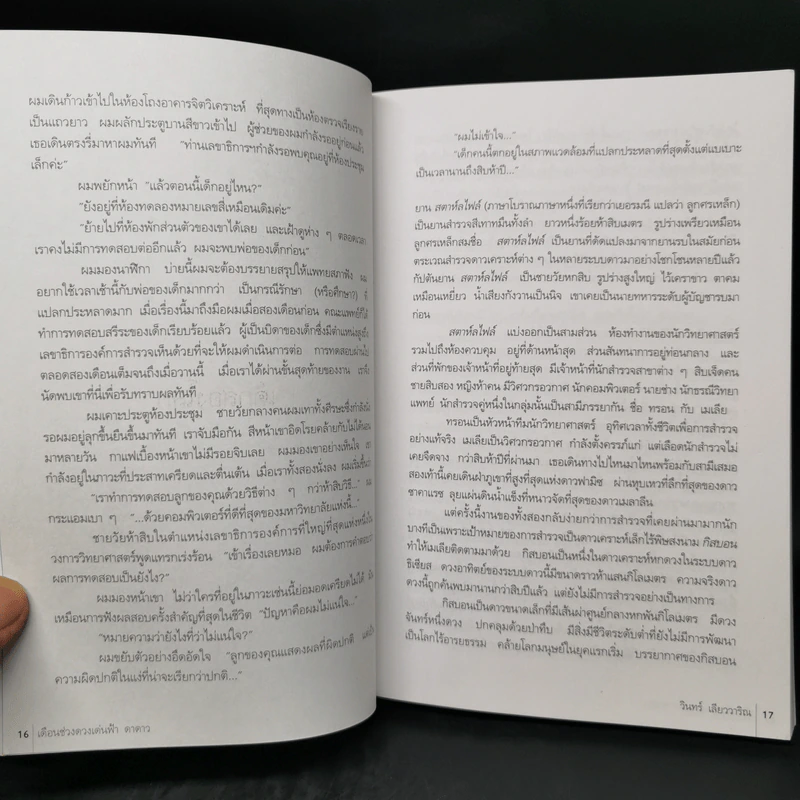 ผมเดินก้าวเข้าไปในห้องโถงอาคารจิตวิเคราะห์ ที่สุดทางเป็นห้องตรวจเรียงราย
เป็นแถวยาว ผมผลักประตูบานสีขาวเข้าไป ผู้ช่วยของผมกำลังรออยู่ก่อนแล้ว
เธอเดินตรงรี่มาหาผมทันที "ท่านเลขาธิการฯกำลังรอพบคุณอยู่ที่ห้องประชุม
เล็กค่ะ"
ผมพยักหน้า "แล้วตอนนี้เด็กอยู่ไหน?"
"ยังอยู่ที่ห้องทดลองหมายเลขสี่เหมือนเดิมค่ะ"
"ย้ายไปที่ห้องพักส่วนตัวของเขาได้เลย และเฝ้าดูห่าง ๆ ตลอดเวลา
เราคงไม่มีการทดสอบต่ออีกแล้ว ผมจะพบพ่อของเด็กก่อน"
ผมมองนาฬิกา บ่ายนี้ผมจะต้องบรรยายสรุปให้แพทยสภาฟัง ผม
อยากใช้เวลาเช้านี้กับพ่อของเด็กมากกว่า เป็นกรณีรักษา (หรือศึกษา?) ที่
แปลกประหลาดมาก เมื่อเรื่องนี้มาถึงมือผมเมื่อสองเดือนก่อน คณะแพทย์ก็ได้
ทำการทดสอบสรีระของเด็กเรียบร้อยแล้ว ผู้เป็นบิดาของเด็กซึ่งมีตำแหน่งสูงถึง
เลขาธิการองค์การสำรวจเห็นด้วยที่จะให้ผมดำเนินการต่อ การทดสอบผ่านไป
ตลอดสองเดือนเต็มจนถึงเมื่อวานนี้ เมื่อเราได้ผ่านขั้นสุดท้ายของงาน เราจึง
นัดพบเขาที่นี่เพื่อรับทราบผลทันที
ผมเคาะประตูห้องประชุม ชายวัยกลางคนผมเทาทั้งศีรษะซึ่งกำลังนั่ง
รอผมอยู่ลุกขึ้นยืนขึ้นมาทันที เราจับมือกัน สีหน้าเขาอิดโรยคล้ายกับไม่ได้นอน
มาหลายวัน กาแฟเบื้องหน้าเขาไม่มีรอยจิบเลย ผมมองเขาอย่างเห็นใจ เขา
กำลังอยู่ในภาวะที่ประสาทเครียดและตื่นเต้น เมื่อเราทั้งสองนั่งลง ผมเริ่มขึ้นว่า
"เราทำการทดสอบลูกของคุณด้วยวิธีต่าง ๆ กว่าห้าสิบวิธี..." ผม
กระแอมเบา ๆ "...ด้วยคอมพิวเตอร์ที่ดีที่สุดของมหาวิทยาลัยแห่งนี้..."
ชายวัยห้าสิบในตำแหน่งเลขาธิการองค์การที่ใหญ่ที่สุดแห่งหนึ่งใน
วงการวิทยาศาสตร์พูดแทรกเร่งร้อน "เข้าเรื่องเลยหมอ ผมต้องการคำตอบ
ผลการทดสอบเป็นยังไง?"
ผมมองหน้าเขา ไม่ว่าใครที่อยู่ในภาวะเช่นนี้ย่อมอดเครียดไม่ได้ มัน
เหมือนการฟังผลสอบครั้งสำคัญที่สุดในชีวิต "ปัญหาคือผมไม่แน่ใจ..."
"หมายความว่ายังไงที่ว่าไม่แน่ใจ?"
ผมขยับตัวอย่างอึดอัดใจ "ลูกของคุณแสดงผลที่ผิดปกติ แต่เป็น
ความผิดปกติในแง่ที่น่าจะเรียกว่าปกติ..."
16 เดือนช่วงดวงเด่นฟ้า ดาดาว
"ผมไม่เข้าใจ..."
"เด็กคนนี้ตกอยู่ในสภาพแวดล้อมที่แปลกประหลาดที่สุดตั้งแต่แบเบาะ
เป็นเวลานานถึงสิบห้าปี..."
ยาน สตาห์ลไฟล์ (ภาษาโบราณภาษาหนึ่งที่เรียกว่าเยอรมนี แปลว่า ลูกศรเหล็ก)
เป็นยานสำรวจสีเทาหม่นทั้งลำ ยาวหนึ่งร้อยห้าสิบเมตร รูปร่างเพรียวเหมือน
ลูกศรเหล็กสมชื่อ สตาห์ลไฟล์ เป็นยานที่ดัดแปลงมาจากยานรบในสมัยก่อน
ตระเวณสำรวจดาวเคราะห์ต่าง ๆ ในหลายระบบดาวมาอย่างโชกโชนหลายปีแล้ว
กัปตันยาน สตาห์ลไฟล์ เป็นชายวัยหกสิบ รูปร่างสูงใหญ่ ไว้เคราขาว ตาคม
เหมือนเหยี่ยว น้ำเสียงกังวานเป็นนิจ เขาเคยเป็นนายทหารระดับผู้บัญชารบมา
ก่อน
สตาห์ลไฟล์ แบ่งออกเป็นสามส่วน ห้องทำงานของนักวิทยาศาสตร์
รวมไปถึงห้องควบคุม อยู่ที่ด้านหน้าสุด ส่วนสันทนาการอยู่ท่อนกลาง และ
ส่วนที่พักของเจ้าหน้าที่อยู่ท้ายสุด มีเจ้าหน้าที่นักสำรวจสาขาต่าง ๆ สิบเจ็ดคน
ชายสิบสอง หญิงห้าคน มีวิศวกรอวกาศ นักคอมพิวเตอร์ นายช่าง นักธรณีวิทยา
แพทย์ นักสำรวจคู่หนึ่งในกลุ่มนั้นเป็นสามีภรรยากัน ชื่อ ทรอน กับ เมเลีย
ทรอนเป็นหัวหน้าทีมนักวิทยาศาสตร์ อุทิศเวลาทั้งชีวิตเพื่อการสำรวจ
อย่างแท้จริง เมเลียเป็นวิศวกรอวกาศ กำลังตั้งครรภ์แก่ แต่เลือดนักสำรวจไม่
เคยจืดจาง กว่าสิบห้าปีที่ผ่านมา เธอเดินทางไปไหนมาไหนพร้อมกับสามีเสมอ
สองเท้านี้เคยเดินฝ่าภูเขาที่สูงที่สุดแห่งดาวฟามีซ ผ่านหุบเหวที่ลึกที่สุดของดาว
ซาคาแรซ ลุยแผ่นดินน้ำแข็งที่หนาวจัดที่สุดของดาวเมลาลีน
แต่ครั้งนี้งานของทั้งสองกลับง่ายกว่าการสำรวจที่เคยผ่านมามากนัก
บางทีเพราะเป้าหมายของการสำรวจเป็นดาวเคราะห์เล็กไร้พิษสงนาม กิสบอน
ทำให้เมเลียติดตามมาด้วย กิสบอนเป็นหนึ่งในดาวเคราะห์หกดวงในระบบดาว
ธิเซียส ดวงอาทิตย์ของระบบดาวนี้มีขนาดราวห้าแสนกิโลเมตร ความจริงดาว
ดวงนี้ถูกค้นพบมานานกว่าสิบปีแล้ว แต่ยังไม่มีการสำรวจอย่างเป็นทางการ
กิสบอนเป็นดาวขนาดเล็กที่มีเส้นผ่าศูนย์กลางหกพันกิโลเมตร มีดวง
จันทร์หนึ่งดวง ปกคลุมด้วยป่าทึบ มีสิ่งมีชีวิตระดับต่ำที่ยังไม่มีการพัฒนา
เป็นโลกไร้อารยธรรม คล้ายโลกมนุษย์ในยุคแรกเริ่ม บรรยากาศของกิสบอน
วินทร์ เลียววาริณ 17